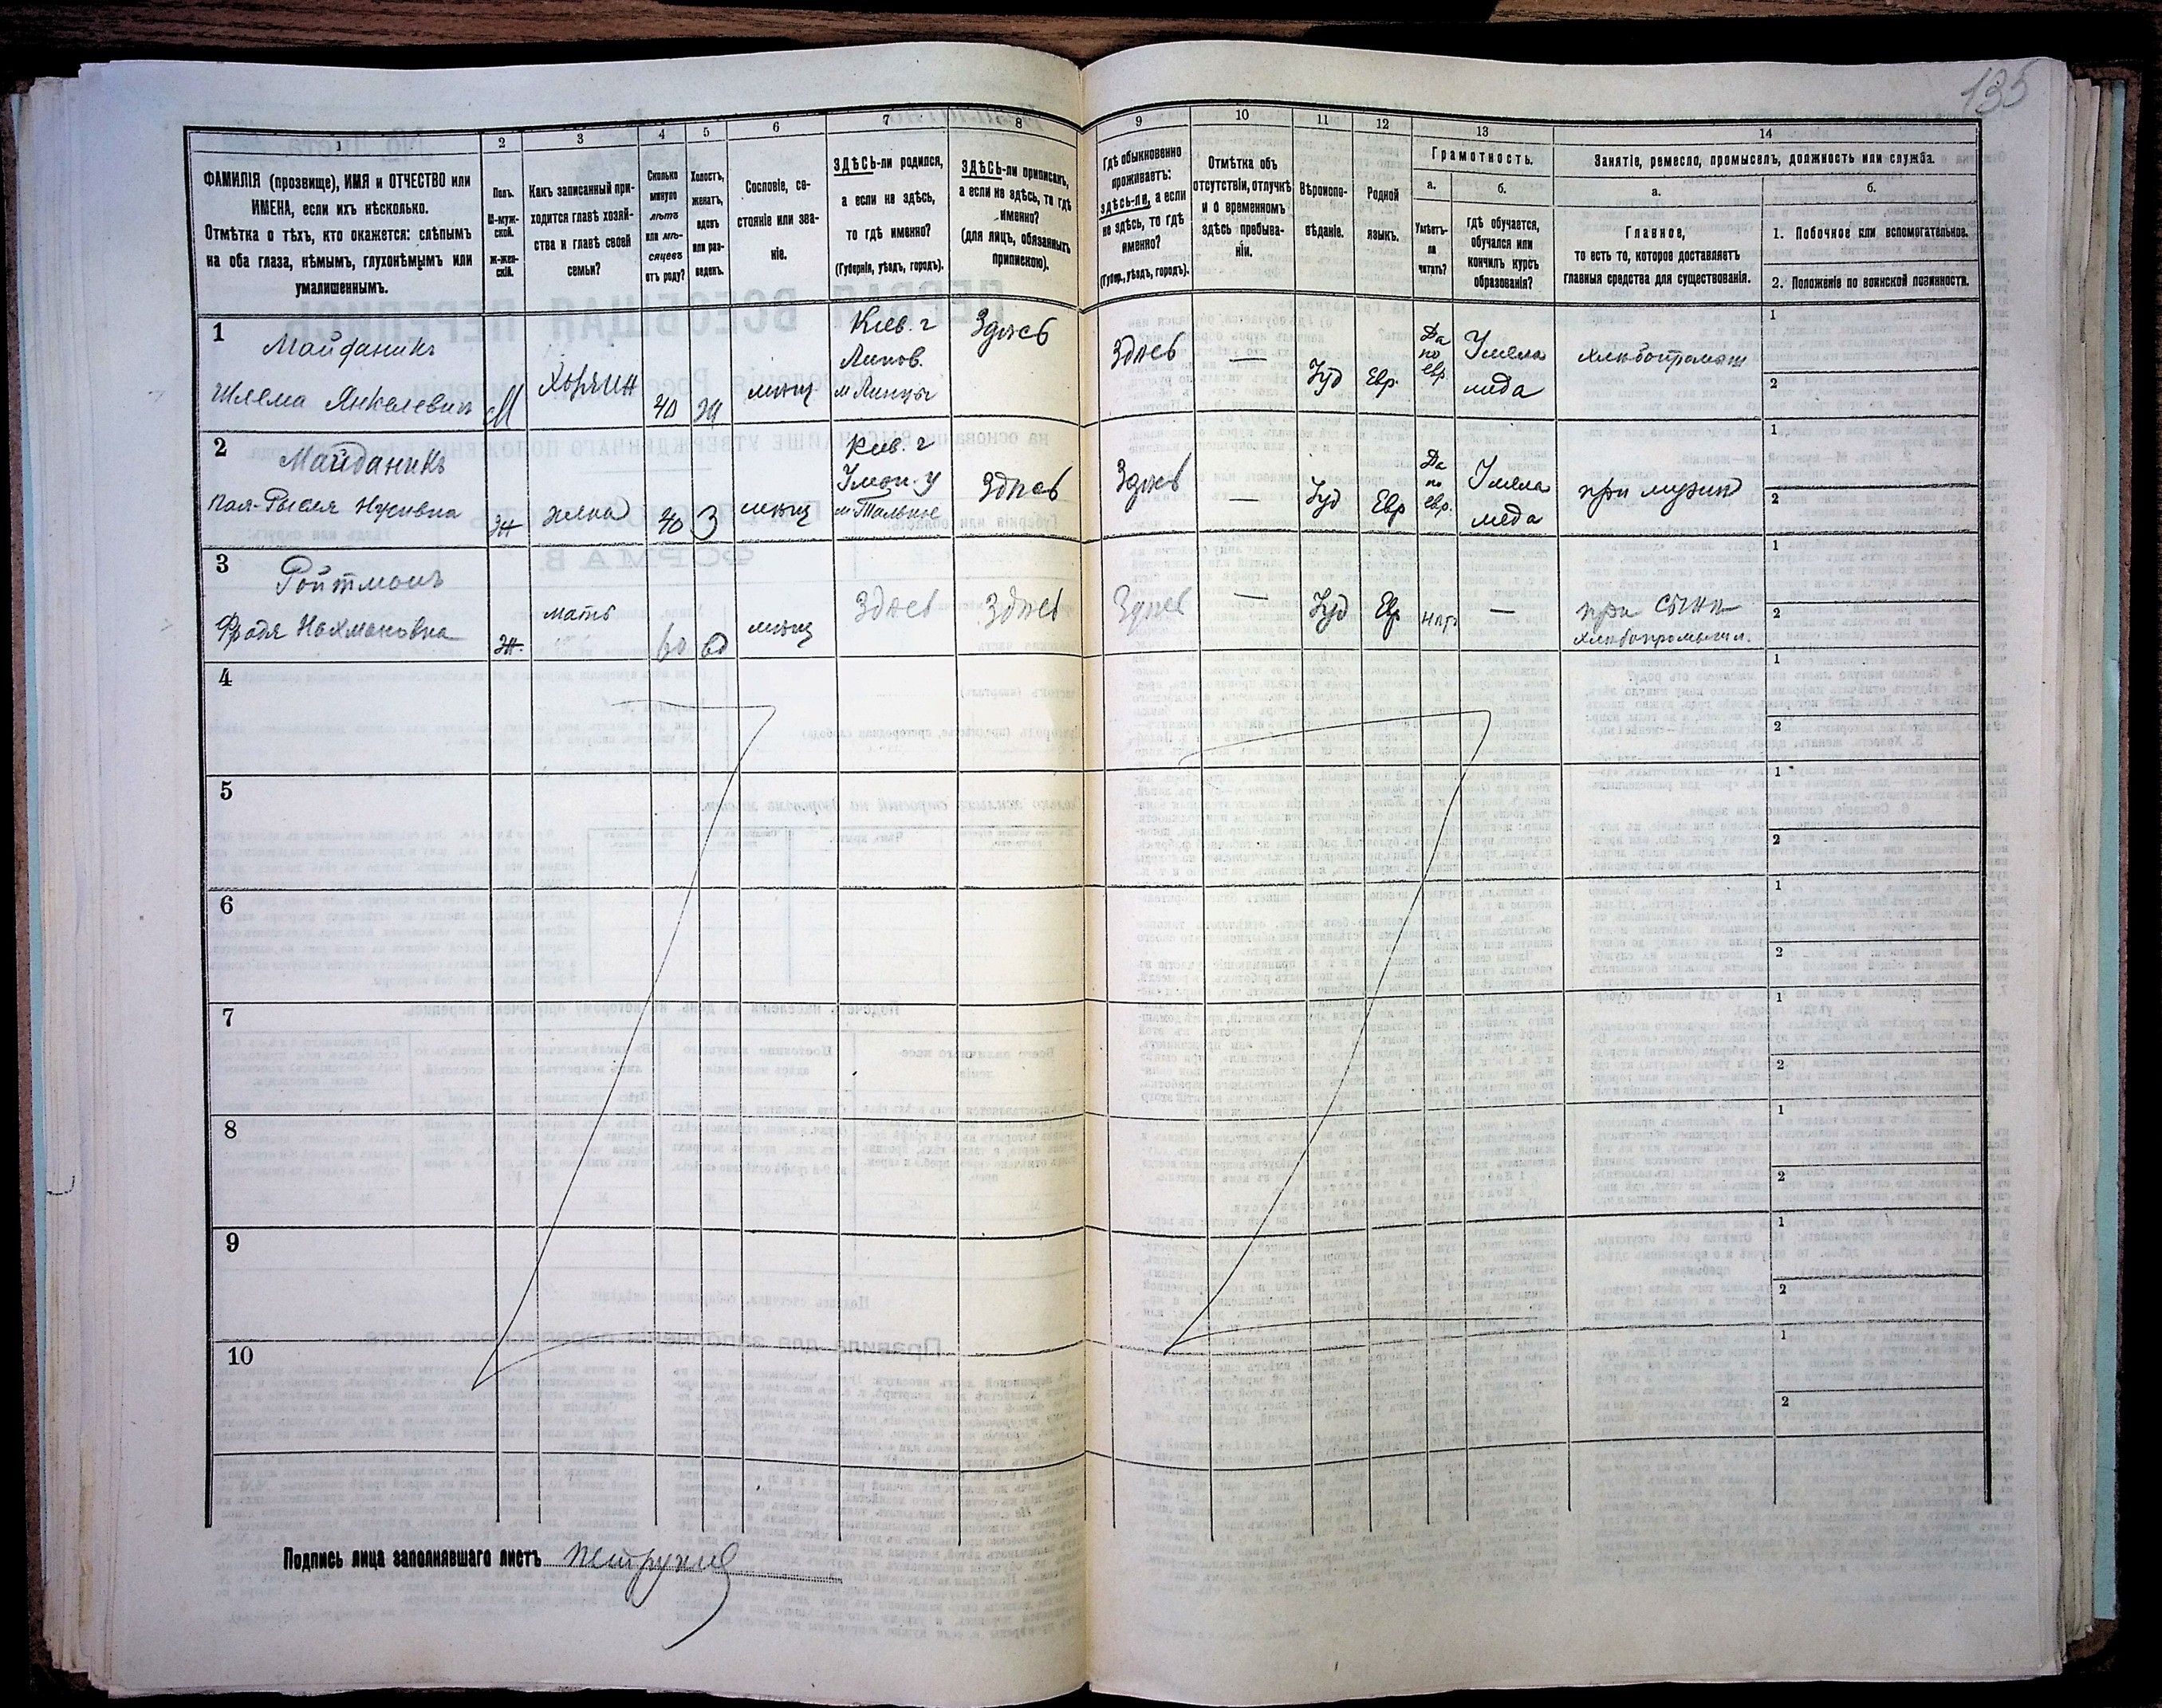 135
1
2
3
4
5
6
7
8
9
10
11
12
13
14
ФАМИЛІЯ (прозвище), ИМЯ и ОТЧЕСТВО или
ИМЕНА, если ихъ нѣсколько.
Отмѣтка о тѣхъ, кто окажется: слѣпымъ
на оба глаза, нѣмымъ, глухонѣмымъ или
умалишеннымъ.
Полъ.
М-муж-
ской.
Ж-жен-
скій.
Какъ записанный при-
ходится главѣ хозяй-
ства и главѣ своей
семьи?
Сколько
минуло
лѣтъ
или мѣ-
сяцевъ
отъ роду?
Холостъ,
женатъ,
вдовъ
или раз-
веденъ.
Сословіе, со-
стояніе или зва-
ніе.
ЗДѢСЬ-ли родился,
а если не здѣсь,
то гдѣ именно?
(Губернія, уѣздъ, городъ).
ЗДѢСЬ-ли приписанъ,
а если не здѣсь, то гдѣ
именно?
(для лицъ, обязанныхъ
припискою).
Гдѣ обыкновенно
проживаетъ:
здѣсь-ли, а если
не здѣсь, то гдѣ
именно?
(Губерн., уѣздъ, городъ).
Отмѣтка объ
отсутствіи, отлучкѣ
и о временномъ
здѣсь пребыва-
ніи.
Вѣроиспо-
вѣданіе.
Родной
языкъ.
Грамотность.
а.
Умѣетъ-
ли
читать?
б.
гдѣ обучается,
обучался или
кончилъ курсъ
образованія?
Занятіе, ремесло, промыселъ, должность или служба.
а.
Главное,
то есть то, которое доставляетъ
главныя средства для существованія.
б.
1. Побочное или вспомогательное.
2. Положеніе по воинской повинности.
1
Майданикъ
Шлема Янкелевичъ
М
Хозяин
40
Ж
мѣщ
Киев. г
Липов.
м Линцы
Здѣсь
Здѣсь
—
Іуд
Евр.
Да
по
евр.
У мела
меда
1
2
2
Майданикъ
Ж
жена
40
З
мѣщ
Киев. г
Уман. у
м Тальное
Здѣсь
Здѣсь
—
Іуд
Евр
Да
по
евр.
У мела
меда
при мужѣ
1
2
3
Ройтманъ
Нахмановна
Ж.
мать
60
мѣщ
Здѣсь
Здѣсь
Здѣсь
—
Іуд
Евр
нѣт
—
при сынѣ
хлѣбопромышл.
1
2
4
1
2
5
1
2
6
1
2
7
1
2
8
1
2
9
1
2
10
1
2
Подпись лица заполнявшаго листъ